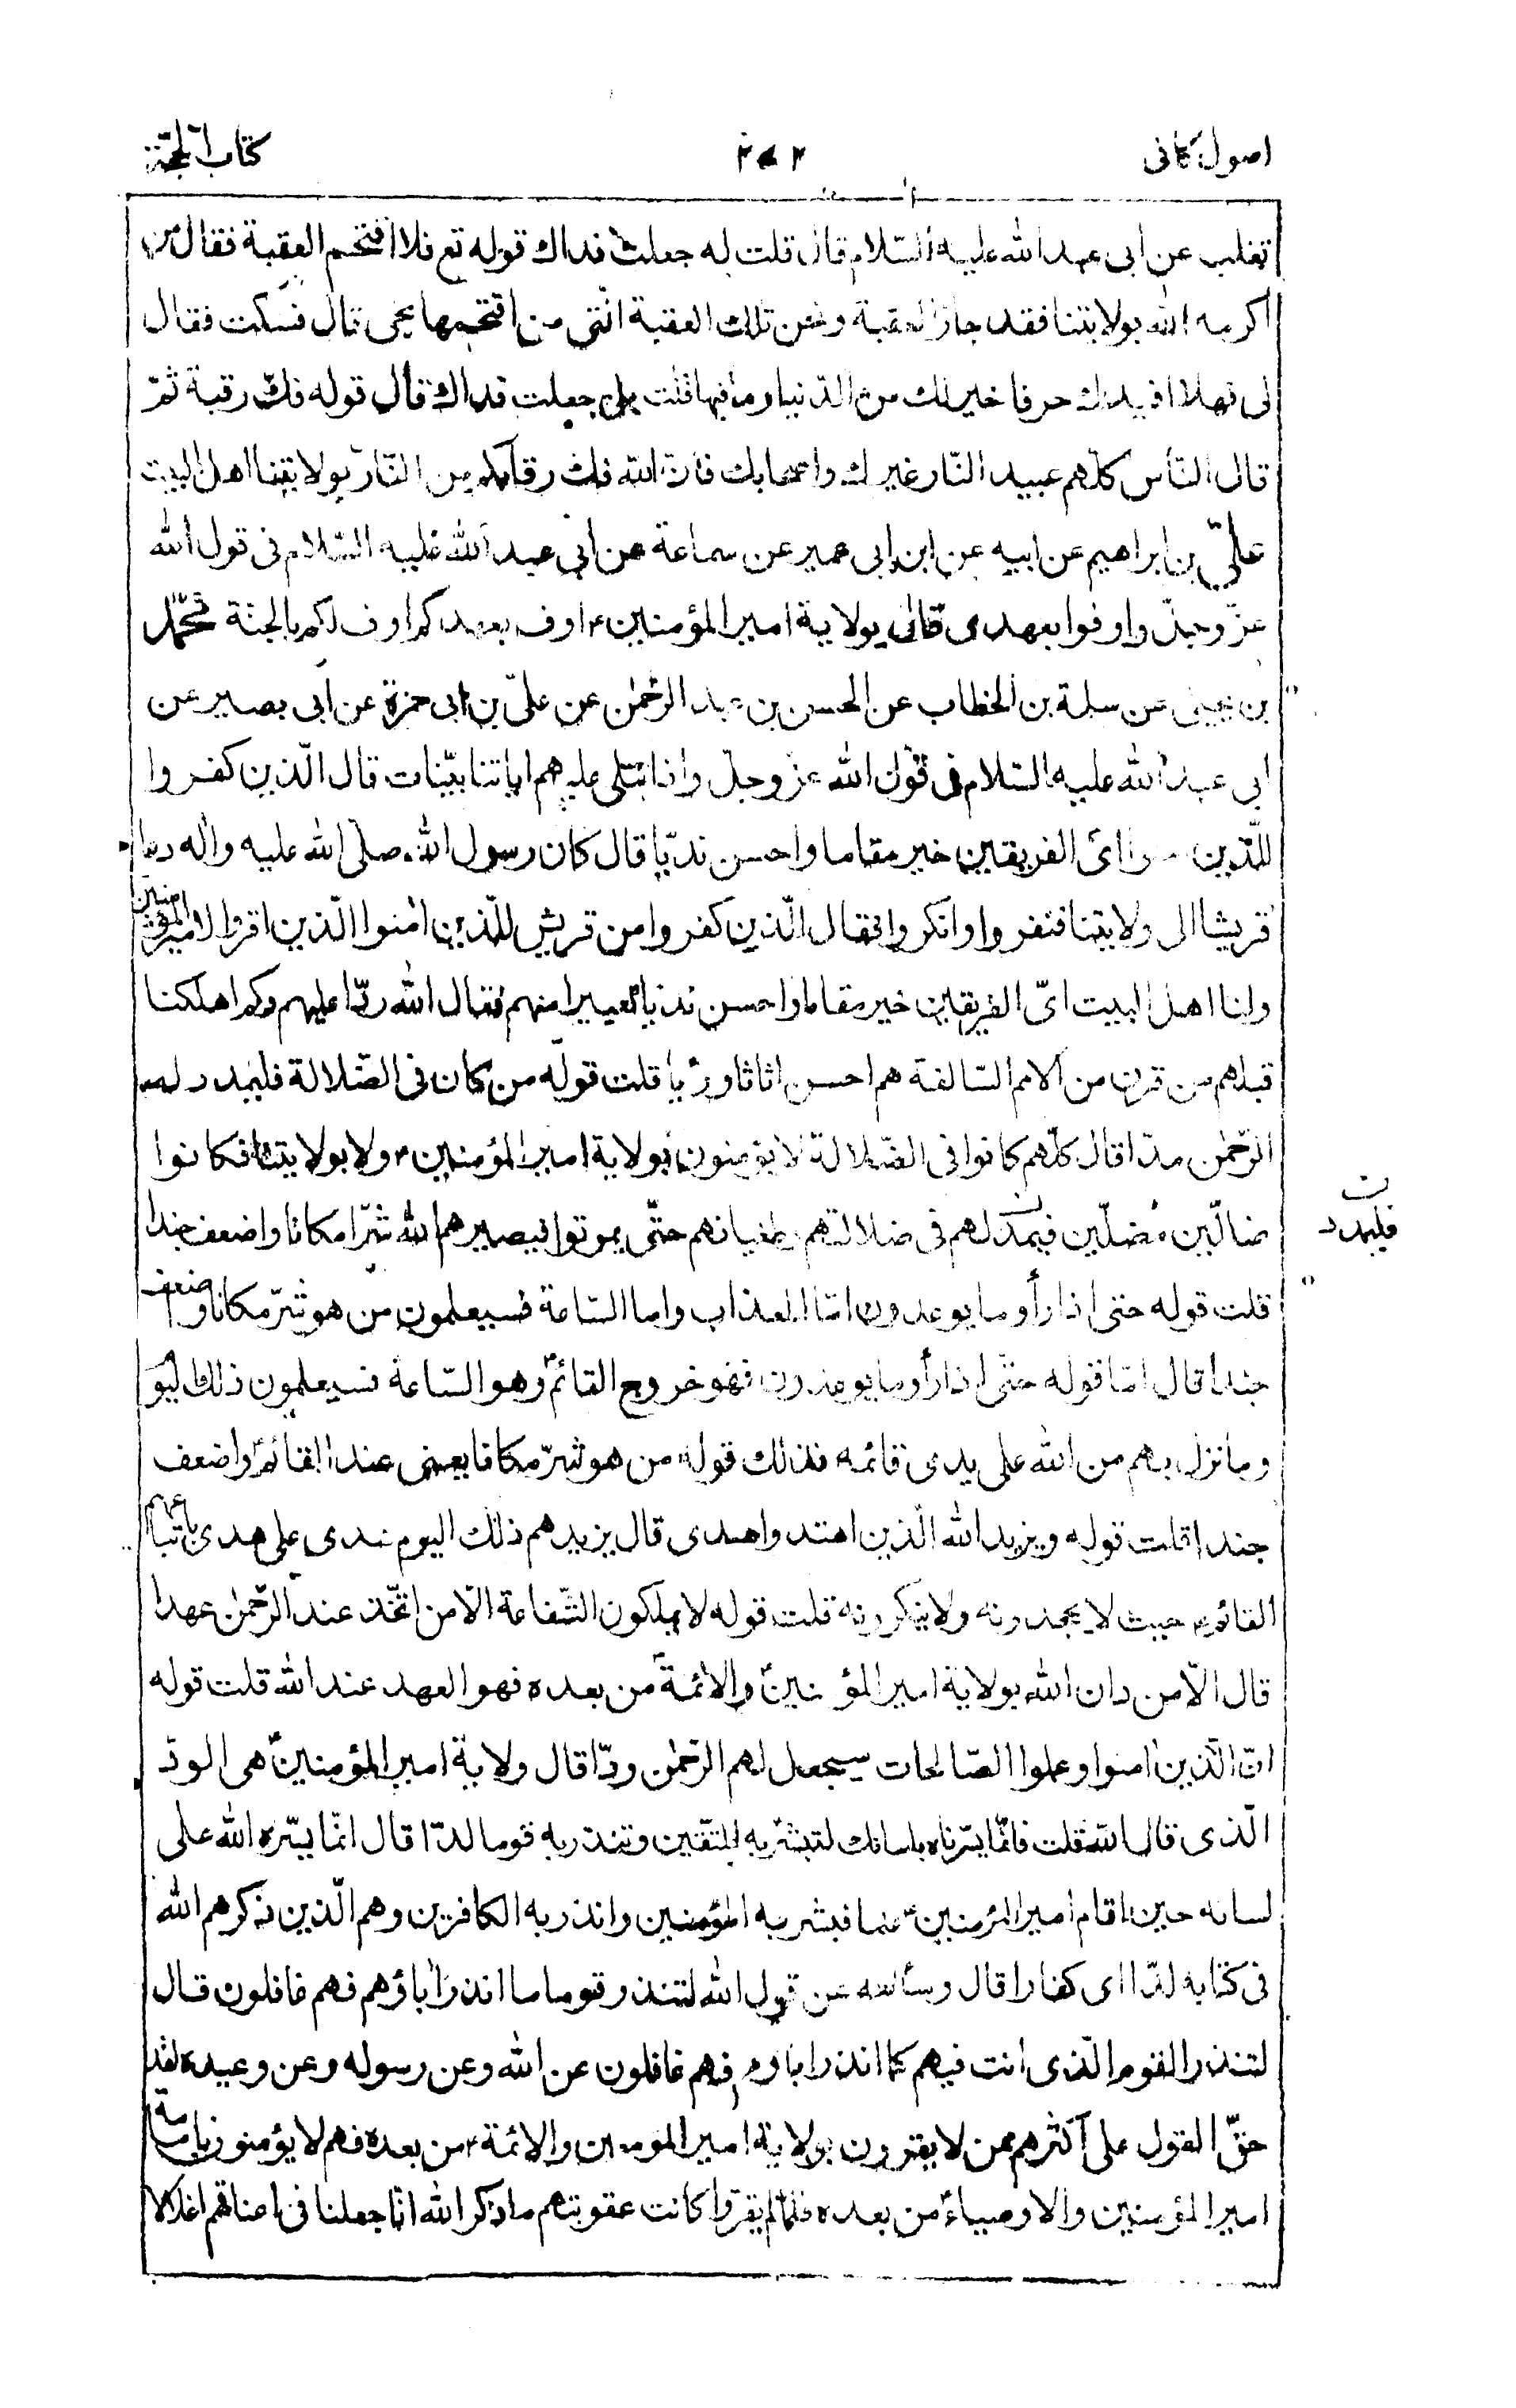 اصول كافى
كتاب الحجّة
تغلب عن ابى عبد الله عليه السّلام قال قلت له جعلت فداك قوله تع فلا اقتحم العقبة فقال من
اكرمه الله بولايتنا فقد جاز العقبة ونحن تلك العقبة الّتى من اقتحمها نجى قال فسكت فقال
لى فهلا افيدك حرفا خير لك من الدّنيا وما فيها قلت بلى جعلت فداك قال قوله فك رقبة ثمّ
قال النّاس كلّهم عبيد النّار غيرك واصحابك فانّ الله فك رقابكم من النّار بولايتنا اهل البيت
علىّ بن ابراهيم عن ابيه عن ابن ابى عمير عن سماعة عن ابى عبد الله عليه السّلام فى قول الله
عزّ وجلّ واوفوا بعهدى قال بولاية امير المؤمنين ع اوف بعهدكم اوف لكم بالجنّة محمّد
بن يحيى عن سلمة بن الخطاب عن الحسن بن عبد الرّحمن عن علىّ بن ابى حمزة عن ابى بصير عن
ابى عبد الله عليه السّلام فى قول الله عزّ وجلّ واذا تتلى عليهم اياتنا بيّنات قال الّذين كفروا
للّذين امنوا اىّ الفريقين خير مقاما واحسن نديّا قال كان رسول الله صلّى الله عليه واله دعا
قريشا الى ولايتنا فنفروا وانكروا فقال الّذين كفروا من قريش للّذين امنوا الّذين اقرّوا لامير المؤمنين
ولنا اهل البيت اىّ الفريقين خير مقاما واحسن نديّا تعييرا منهم فقال الله ردّا عليهم وكم اهلكنا
قبلهم من قرن من الامم السّالفة هم احسن اثاثا ورئيا قلت قوله من كان فى الضّلالة فليمدد له
الرّحمن مدّا قال كلّهم كانوا فى الضّلالة لا يؤمنون بولاية امير المؤمنين ع ولا بولايتنا فكانوا
ضالّين مضلّين فيمدّ لهم فى ضلالتهم وطغيانهم حتّى يموتوا فيصيرهم الله شرّا مكانا واضعف جندا
ن
فليمدد
قلت قوله حتى اذا رأوا ما يوعدون امّا العذاب واما السّاعة فسيعلمون من هو شرّ مكانا واضعف
جندا قال امّا قوله حتّى اذا رأوا ما يوعدون فهو خروج القائم وهو السّاعة فسيعلمون ذلك اليو
وما نزل بهم من الله على يدى قائمه فذلك قوله من هو شرّ مكانا يعنى عند القائم واضعف
جندا قلت قوله ويزيد الله الّذين اهتدوا هدى قال يزيدهم ذلك اليوم هدى على هدى باتّباعهم
القائم ع حيث لا يجحدونه ولا ينكرونه قلت قوله لا يملكون الشّفاعة الّا من اتّخذ عند الرّحمن عهدا
قال الّا من دان الله بولاية امير المؤمنين والائمة من بعده فهو العهد عند الله قلت قوله
انّ الّذين امنوا وعملوا الصّالحات سيجعل لهم الرّحمن ودّا قال ولاية امير المؤمنين هى الودّ
الّذى قال الله قلت فانّما يسّرناه بلسانك لتبشّر به المتّقين وتنذر به قوما لدّا قال انّما يسّره الله على
لسانه حين اقام امير المؤمنين علما فبشر به المؤمنين وانذر به الكافرين وهم الّذين ذكرهم الله
فى كتابه لدّا اى كفارا قال وسألته عن قول الله لتنذر قوما ما انذر اباؤهم فهم غافلون قال
لتنذر القوم الّذى انت فيهم كما انذر اباؤهم فهم غافلون عن الله وعن رسوله وعن وعيده لقد
حقّ القول على اكثرهم ممن لا يقرون بولاية امير المؤمنين والائمة ع من بعده فهم لا يؤمنون بامامة
امير المؤمنين والاوصياء من بعده فلمّا لم يقرّوا كانت عقوبتهم ما ذكر الله انّا جعلنا فى اعناقهم اغلالا